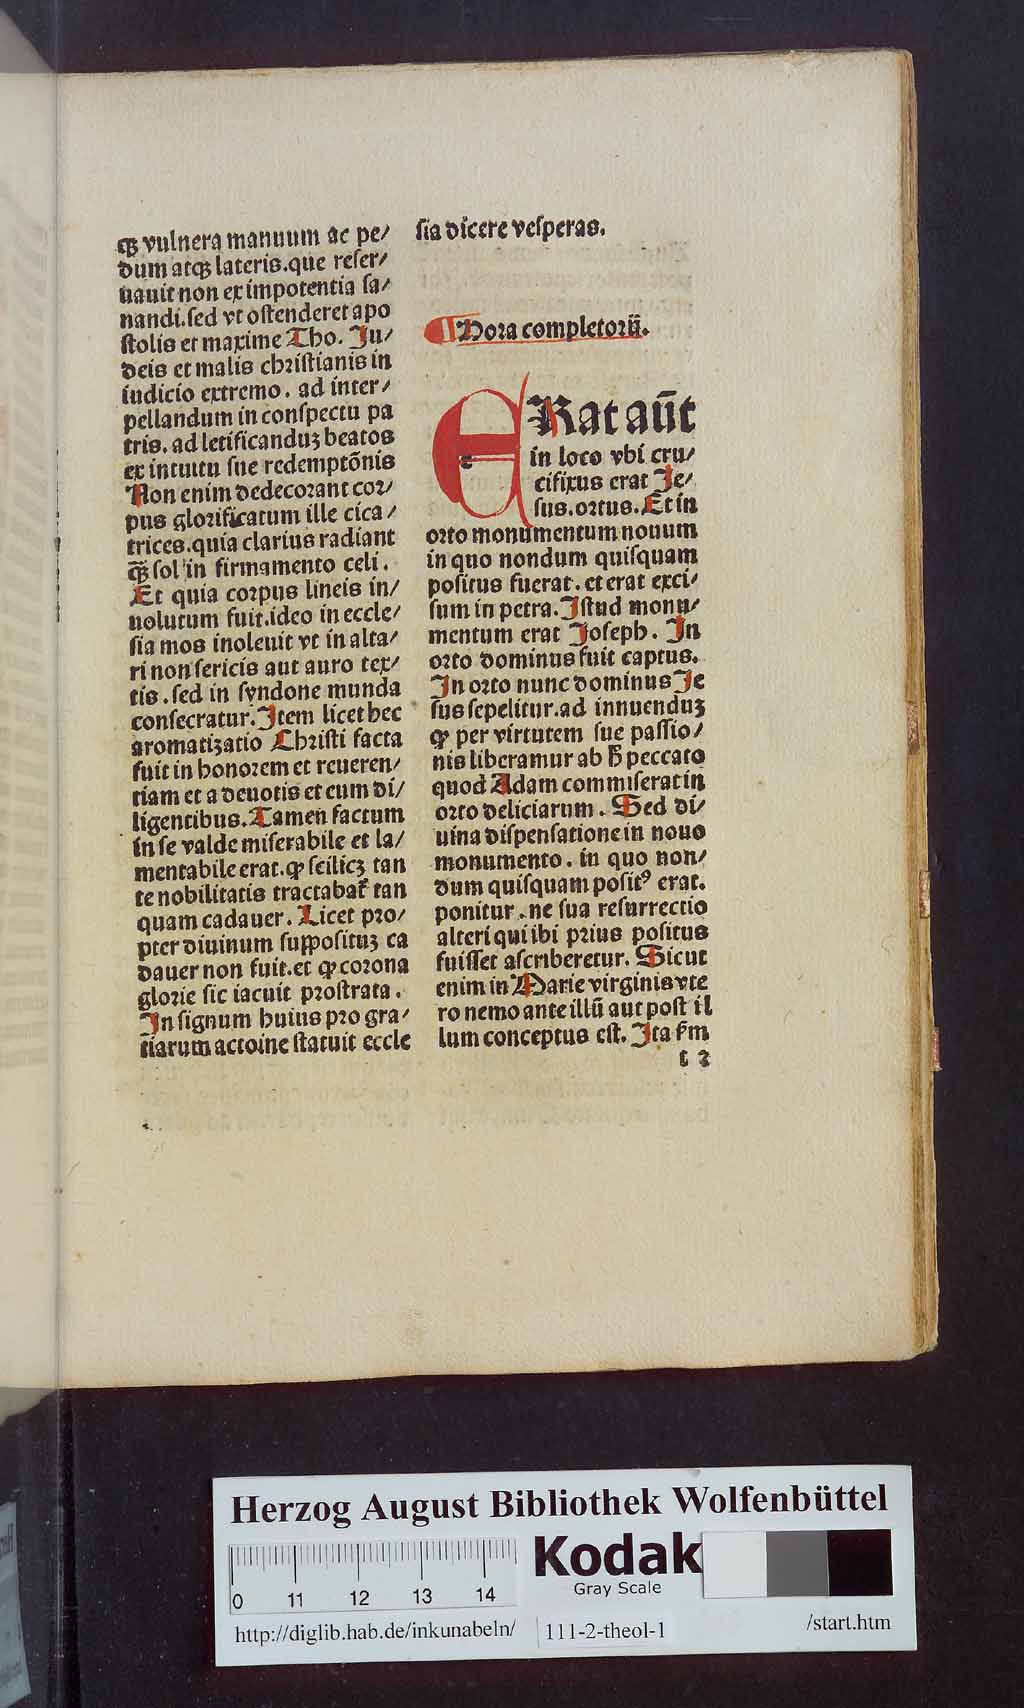 qꝫ vulnera manuum ac pe⸗
dum atqꝫ lateris.que reſer⸗
uauit non ex impotentia ſa⸗
nandi.ſed vt oſtenderet apo
ſtolis et maxime Tho. Iu⸗
deis et malis chꝛiſtianis in
iudicio extremo. ad inter⸗
pellandum in conſpectu pa
tris. ad letificanduꝫ beatos
ex intuitu ſue redemptōnis
Non enim dedecoꝛant coꝛ⸗
pus gloꝛificatum ille cica⸗
trices.quia clarius radiant
qꝫ̄ ſol in firmamento celi.
Et quia coꝛpus lineis in⸗
uolutum fuit.ideo in eccle⸗
ſia mos inoleuit vt in alta⸗
ri non ſericis aut auro tex⸗
tis.ſed in ſyndone munda
conſecratur. Item licet hec
aromatiꝫatio Chꝛiſti facta
fuit in honoꝛem et reueren⸗
tiam et a deuotis et eum di⸗
ligentibus. Tamen factum
in ſe valde miſerabile et la⸗
mentabile erat.ꝙ ſcilicꝫ tan
te nobilitatis tractabat᷑ tan
quam cadauer. Licet pꝛo⸗
pter diuinum ſuppoſituꝫ ca
dauer non fuit.et ꝙ coꝛona
gloꝛie ſic iacuit pꝛoſtrata.
In ſignum huius pꝛo gra⸗
tiarum actoine ſtatuit eccle
ſia dicere veſperas.
¶ Hoꝛa completoꝛiū.
ERat aūt
in loco vbi cru⸗
cifixus erat Je⸗
ſus.oꝛtus. Et in
oꝛto monumentum nouum
in quo nondum quiſquam
poſitus fuerat. et erat exci⸗
ſum in petra. Iſtud monu⸗
mentum erat Joſeph. In
oꝛto dominus fuit captus.
In oꝛto nunc dominus Je
ſus ſepelitur.ad innuenduꝫ
ꝙ per virtutem ſue paſſio⸗
nis liberamur ab h̄ peccato
quod Adam commiſerat in
oꝛto deliciarum. Sed di⸗
uina diſpenſatione in nouo
monumento. in quo non⸗
dum quiſquam poſitꝰ erat.
ponitur. ne ſua reſurrectio
alteri qui ibi pꝛius poſitus
fuiſſet aſcriberetur. Sicut
enim in Marie virginis vte
ro nemo ante illū aut poſt il
lum conceptus eſt. Ita ẜm
t 2
Herzog August Bibliothek Wolfenbüttel
0 11 12 13 14
Kodak
Gray Scale
http://diglib.hab.de/inkunabeln/ 111-2-theol-1 /start.htm